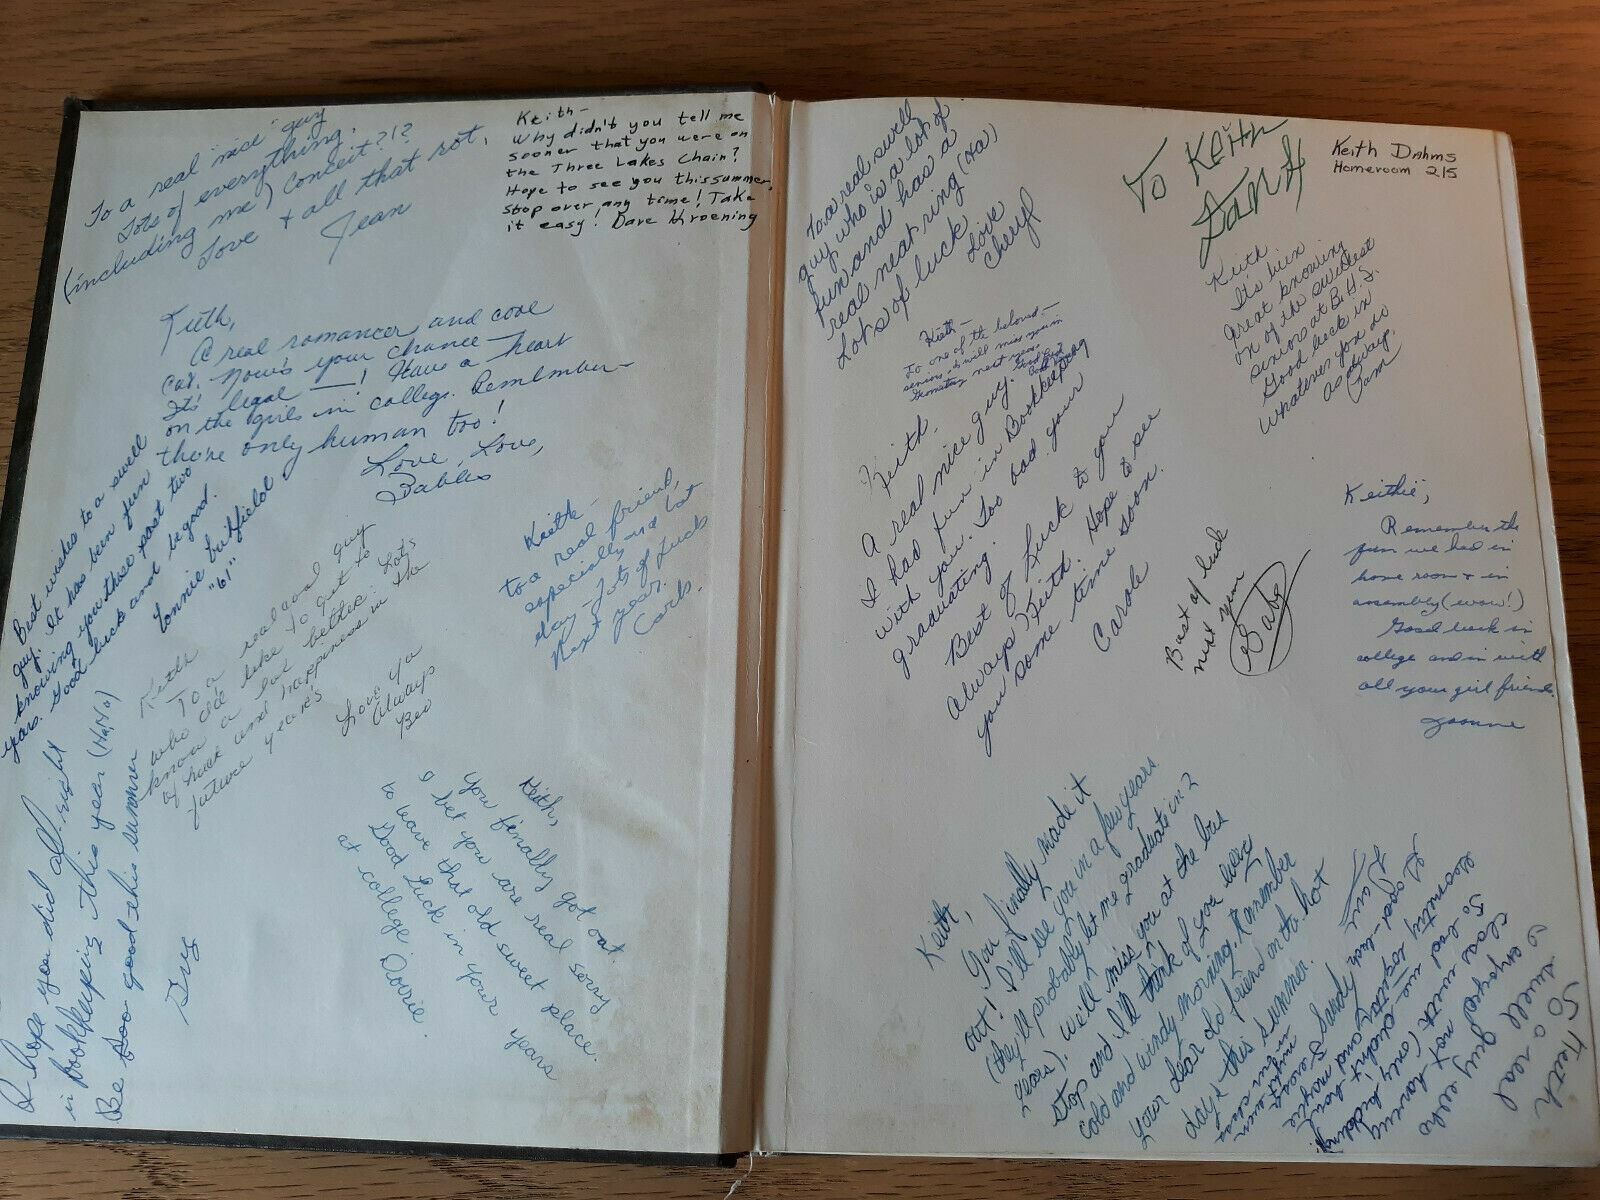 To a real "nice" guy
Lots of everything.
(including me) Conceit?!?
Love + all that rot,
Jean
Keith-
Why didn't you tell me
sooner that you were on
the Three Lakes Chain?
Hope to see you this summer,
stop over any time! Take
it easy! Dave Kroening
Keith,
A real romancer and cool
cat. Now's your chance-
It's legal —! Have a heart
on the girls in college. Remember-
those only human too!
Love, Love,
Best wishes to a swell
guy. It has been fun
knowing you these past two
years. Good luck and be good.
"61"
Keith
To a real cool guy
who I'd like to get to
know a lot better. Lots
of luck and happiness in the
future year's
Love ya
Always
Bev
Keith-
to a real friend,
especially
day- Lots of Luck
Next year.
Carls.
I hope you did all right
in bookkeeping this year (Ha, Ha)
Be too good this summer
Keith,
You finally got out.
I bet you are real sorry
to leave that old sweet place.
Good Luck in your years
at college.
Dorrie.
To a real swell
guy who is a lot of
fun and has a
real neat ring (Ha)
Lots of luck
Love
Cheryl
To Keith
Keith Dahms
Homeroom 215
Keith
It's been
great knowing
on of the sweetest
seniors at B.H.S.
Good luck in
whatever you do
as always.
Pam
Keith-
To one of the beloved-
seniors. I will miss you in
Geometry next year.
Good Luck
Keith-
A real nice guy.
I had fun in Bookkeeping
with you. Too bad your
graduating.
Best of Luck to you
always Keith. Hope to see
you some time soon.
Carole
Best of luck
next year
Keithie,
Remember the
fun we had in
home room + in
assembly (wow!)
Good luck in
college and in with
all your girl friends.
Joanne
Keith,
You finally made it
out! I'll see you in a few years
(they'll probably let me graduate in 2
years). We'll miss you at the bus
stop and I'll think of you every
cold and windy morning. Remember
your dear old friend on the hot
days this summer.
Sandy
Keith
To a real
swell guy who
enjoyed not having
class with (only kidding!)
To bad we didn't have
Geometry together
Good-luck